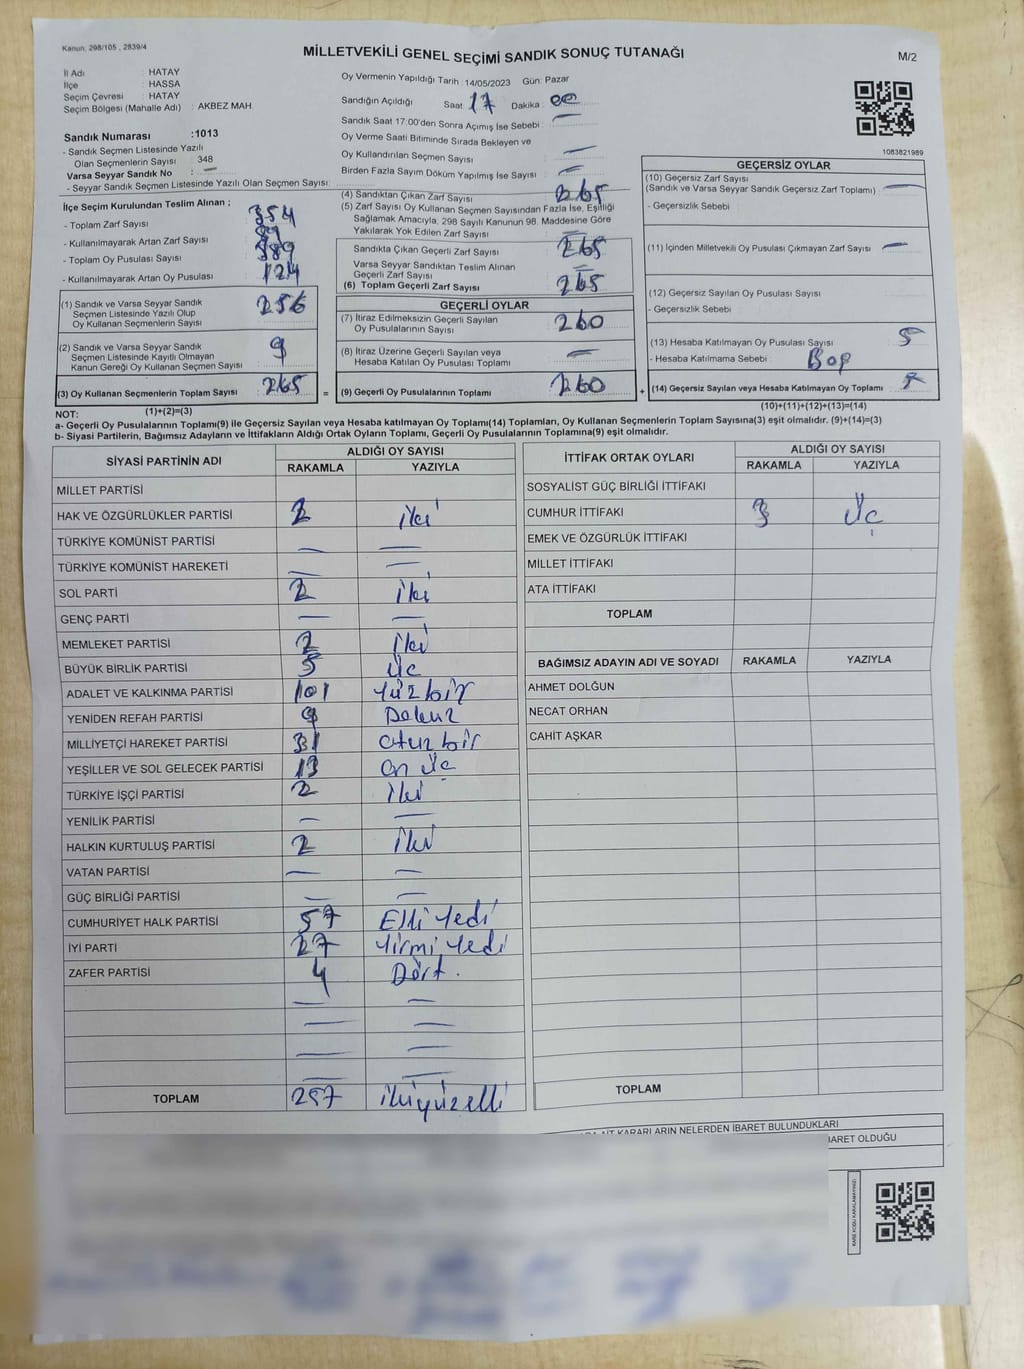 Kanun, 298/105 , 2839/4
MİLLETVEKİLİ GENEL SEÇİMİ SANDIK SONUÇ TUTANAĞI
M/2
İl Adı : HATAY
İlçe : HASSA
Seçim Çevresi : HATAY
Seçim Bölgesi (Mahalle Adı) : AKBEZ MAH.
Oy Vermenin Yapıldığı Tarih : 14/05/2023 Gün: Pazar
Sandığın Açıldığı Saat 17 Dakika : 00
Sandık Saat 17:00'den Sonra Açımış İse Sebebi : —
Oy Verme Saati Bitiminde Sırada Bekleyen ve
Oy Kullandırılan Seçmen Sayısı —
Birden Fazla Sayım Döküm Yapılmış İse Sayısı : —
1083821989
Sandık Numarası :1013
- Sandık Seçmen Listesinde Yazılı
Olan Seçmenlerin Sayısı : 348
Varsa Seyyar Sandık No : —
- Seyyar Sandık Seçmen Listesinde Yazılı Olan Seçmen Sayısı:
İlçe Seçim Kurulundan Teslim Alınan ;
- Toplam Zarf Sayısı : 354
- Kullanılmayarak Artan Zarf Sayısı : 89
- Toplam Oy Pusulası Sayısı : 389
- Kullanılmayarak Artan Oy Pusulası : 124
(1) Sandık ve Varsa Seyyar Sandık
Seçmen Listesinde Yazılı Olup
Oy Kullanan Seçmenlerin Sayısı 256
(2) Sandık ve Varsa Seyyar Sandık
Seçmen Listesinde Kayıtlı Olmayan
Kanun Gereği Oy Kullanan Seçmen Sayısı 9
(3) Oy Kullanan Seçmenlerin Toplam Sayısı 265
(4) Sandıktan Çıkan Zarf Sayısı 265
(5) Zarf Sayısı Oy Kullanan Seçmen Sayısından Fazla İse, Eşitliği
Sağlamak Amacıyla, 298 Sayılı Kanunun 98. Maddesine Göre
Yakılarak Yok Edilen Zarf Sayısı —
Sandıkta Çıkan Geçerli Zarf Sayısı 265
Varsa Seyyar Sandıktan Teslim Alınan
Geçerli Zarf Sayısı —
(6) Toplam Geçerli Zarf Sayısı 265
GEÇERLİ OYLAR
(7) İtiraz Edilmeksizin Geçerli Sayılan
Oy Pusulalarının Sayısı 260
(8) İtiraz Üzerine Geçerli Sayılan veya
Hesaba Katılan Oy Pusulası Toplamı —
= (9) Geçerli Oy Pusulalarının Toplamı 260
GEÇERSİZ OYLAR
(10) Geçersiz Zarf Sayısı
(Sandık ve Varsa Seyyar Sandık Geçersiz Zarf Toplamı) —
- Geçersizlik Sebebi
(11) İçinden Milletvekili Oy Pusulası Çıkmayan Zarf Sayısı —
(12) Geçersiz Sayılan Oy Pusulası Sayısı
- Geçersizlik Sebebi
(13) Hesaba Katılmayan Oy Pusulası Sayısı 5
- Hesaba Katılmama Sebebi Boş
+ (14) Geçersiz Sayılan veya Hesaba Katılmayan Oy Toplamı 5
NOT: (1)+(2)=(3) (10)+(11)+(12)+(13)=(14)
a- Geçerli Oy Pusulalarının Toplamı(9) ile Geçersiz Sayılan veya Hesaba Katılmayan Oy Toplamı(14) Toplamları, Oy Kullanan Seçmenlerin Toplam Sayısına(3) eşit olmalıdır. (9)+(14)=(3)
b- Siyasi Partilerin, Bağımsız Adayların ve İttifakların Aldığı Ortak Oyların Toplamı, Geçerli Oy Pusulalarının Toplamına(9) eşit olmalıdır.
SİYASİ PARTİNİN ADI ALDIĞI OY SAYISI
RAKAMLA YAZIYLA
MİLLET PARTİSİ
HAK VE ÖZGÜRLÜKLER PARTİSİ 2 iki
TÜRKİYE KOMÜNİST PARTİSİ — —
TÜRKİYE KOMÜNİST HAREKETİ — —
SOL PARTİ 2 iki
GENÇ PARTİ — —
MEMLEKET PARTİSİ 2 iki
BÜYÜK BİRLİK PARTİSİ 3 üç
ADALET VE KALKINMA PARTİSİ 101 Yüz bir
YENİDEN REFAH PARTİSİ 9 Dokuz
MİLLİYETÇİ HAREKET PARTİSİ 31 Otuz bir
YEŞİLLER VE SOL GELECEK PARTİSİ 13 On üç
TÜRKİYE İŞÇİ PARTİSİ 2 iki
YENİLİK PARTİSİ — —
HALKIN KURTULUŞ PARTİSİ 2 iki
VATAN PARTİSİ — —
GÜÇ BİRLİĞİ PARTİSİ — —
CUMHURİYET HALK PARTİSİ 57 Elli Yedi
İYİ PARTİ 27 Yirmi Yedi
ZAFER PARTİSİ 4 Dört.
— —
— —
— —
— —
TOPLAM 257 ikiyüzelli
İTTİFAK ORTAK OYLARI ALDIĞI OY SAYISI
RAKAMLA YAZIYLA
SOSYALİST GÜÇ BİRLİĞİ İTTİFAKI
CUMHUR İTTİFAKI 3 Üç
EMEK VE ÖZGÜRLÜK İTTİFAKI
MİLLET İTTİFAKI
ATA İTTİFAKI
TOPLAM
BAĞIMSIZ ADAYIN ADI VE SOYADI RAKAMLA YAZIYLA
AHMET DOLĞUN
NECAT ORHAN
CAHİT AŞKAR
TOPLAM
KARARLARIN NELERDEN İBARET BULUNDUKLARI
İBARET OLDUĞU